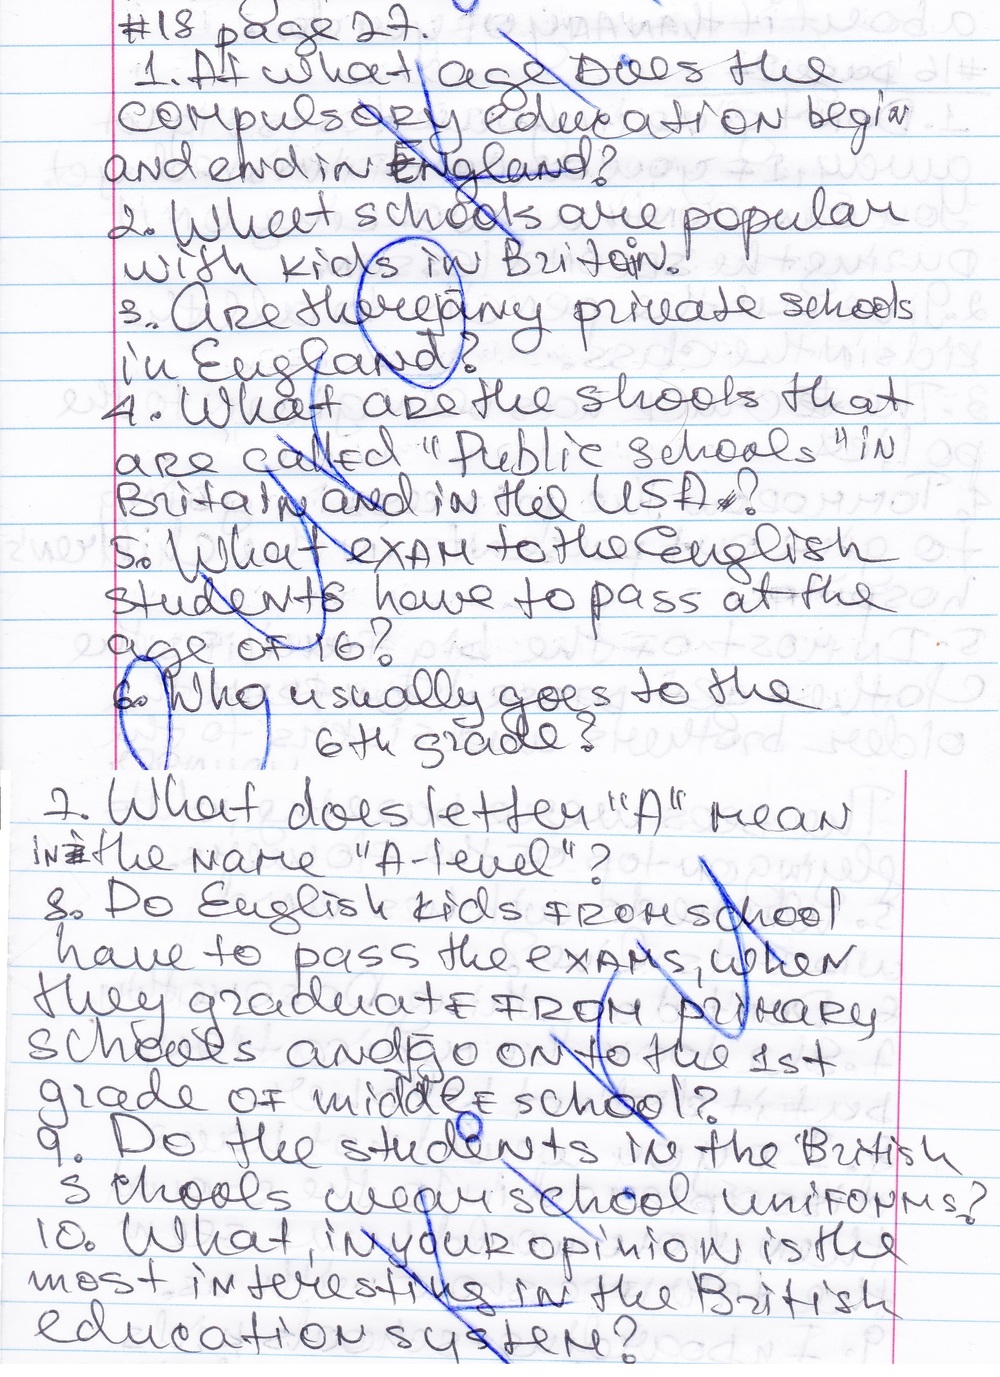 #18 page 27.
1. At what age does the
compulsory education begin
and end in England?
2. What schools are popular
with kids in Britain.
3. Are there any private schools
in England?
4. What are the shools that
are called "Public schools" in
Britain and in the USA?
5. What exam to the English
students have to pass at the
age of 16?
6. Who usually goes to the
6th grade?
7. What does letter "A" mean
in the name "A-level"?
8. Do English kids from school
have to pass the exams, when
they graduate from primary
schools and go on to the 1st
grade of middle school?
9. Do the students in the British
schools wear school uniforms?
10. What, in your opinion is the
most interesting in the British
education system?